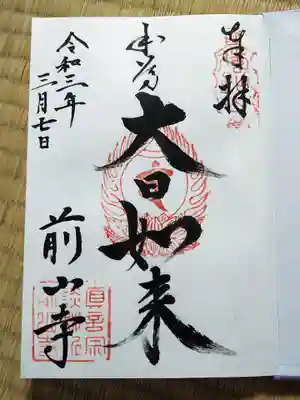 奉拝
本尊
大日如来
前山寺
令和三年
三月七日
真言宗